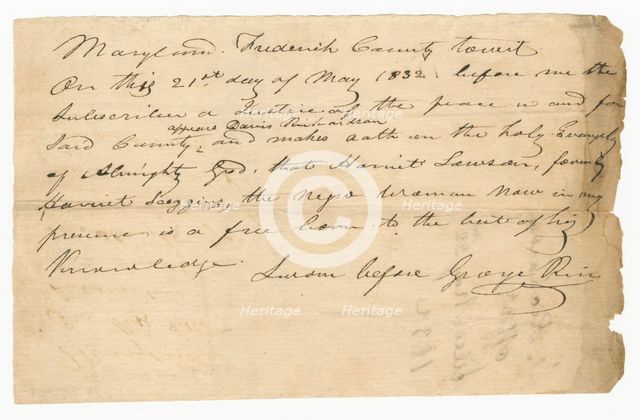 Maryland. Frederick County towit
On this 21st day of May 1832 before me the
Subscriber a Justice of the peace in and for
appears Davis Richardson
Said County, and makes oath on the holy Evangely
of Almighty God, that Harriet Lawson, formerly
Harriet Goggins, the Negro Woman Now in my
presence is a free born to the best of his
Knowledge.
Sworn before George Rice
Heritage
Heritage
Heritage
Heritage
Heritage
Heritage
1832